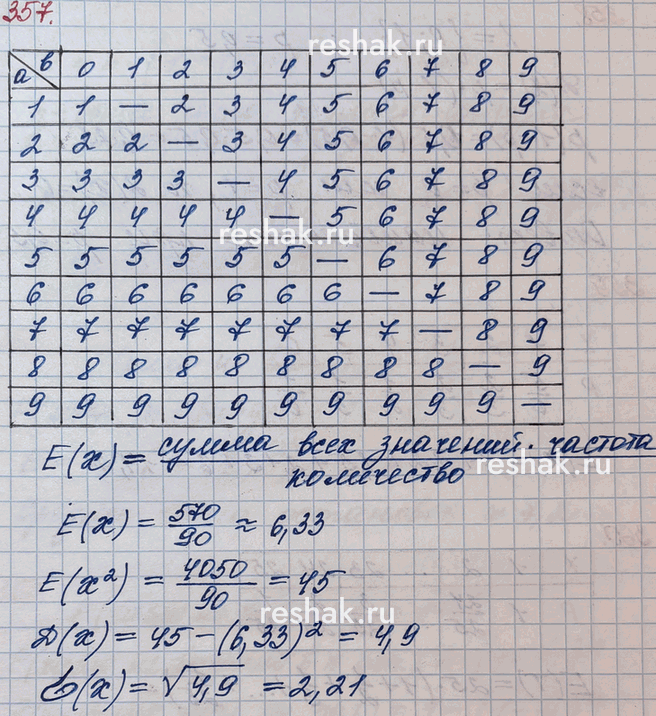 357.
a в 0 1 2 3 4 5 6 7 8 9
1 1 — 2 3 4 5 6 7 8 9
2 2 2 — 3 4 5 6 7 8 9
3 3 3 3 — 4 5 6 7 8 9
4 4 4 4 4 — 5 6 7 8 9
5 5 5 5 5 5 — 6 7 8 9
6 6 6 6 6 6 6 — 7 8 9
7 7 7 7 7 7 7 7 — 8 9
8 8 8 8 8 8 8 8 8 — 9
9 9 9 9 9 9 9 9 9 9 —
E(x) = сумма всех значений · частота / количество
E(x) = 570/90 ≈ 6,33
E(x²) = 4050/90 = 45
D(x) = 45 − (6,33)² = 4,9
σ(x) = √4,9 = 2,21
reshak.ru
reshak.ru
reshak.ru
reshak.ru